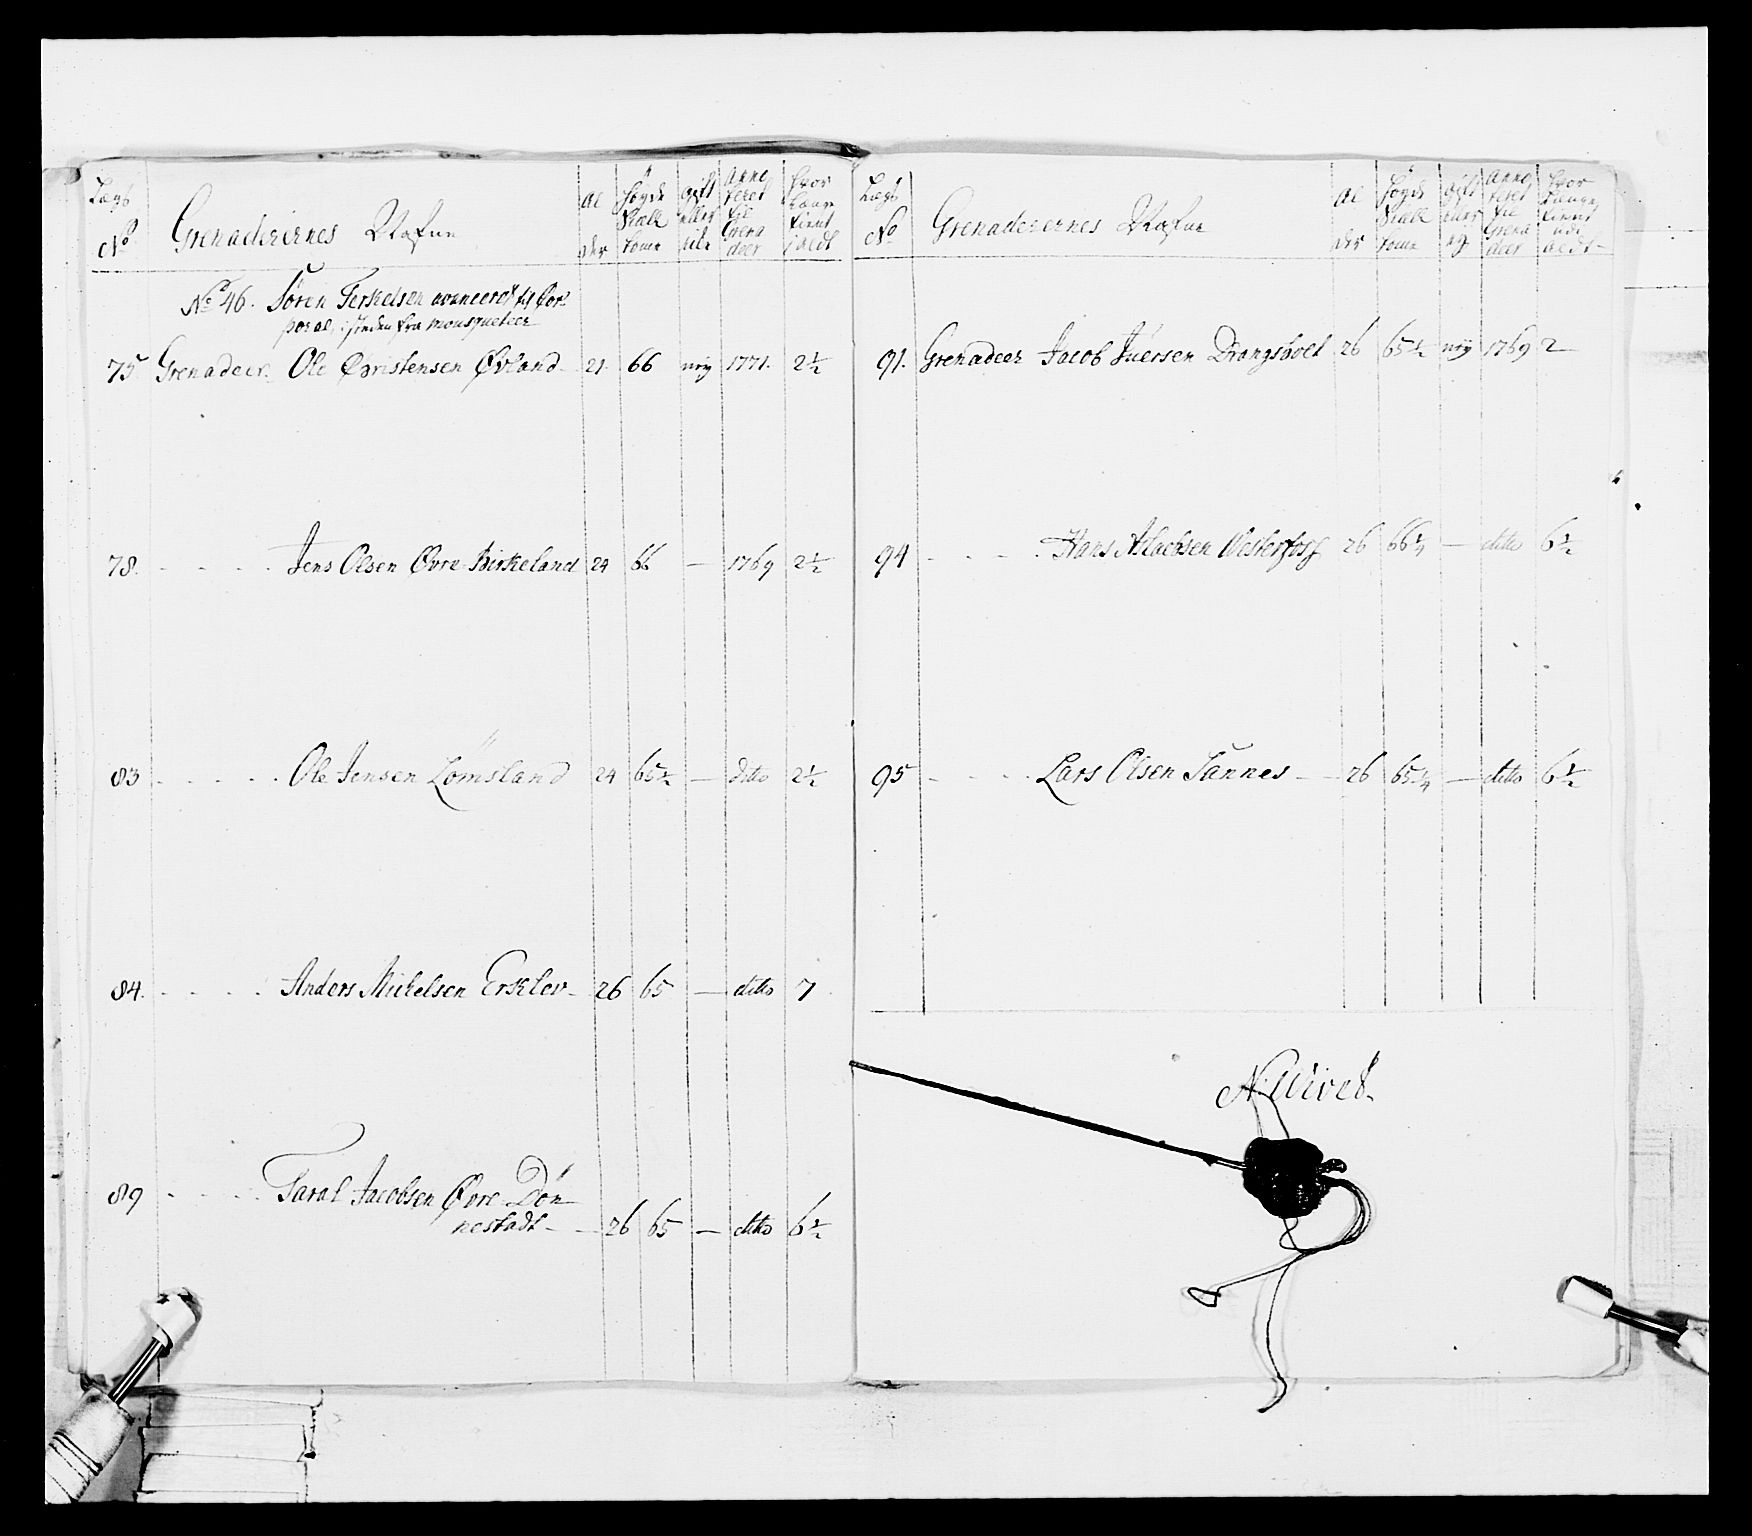 Lægs No
Grenaderernes Nafne
Al der
Høyde Tomme
gift eller
Anno til Grena deer
hvor længe tient
No 46. Søren Terkelsen avanceret til Cor
poral, isteden fra mousqueteer
75 Grenadeer. Ole Christensen Øvland 21. 66 1771. 2½
78. - - - - Jens Olsen Øvre Birkeland 24 66 — 1769 2½
83 - - - - Ole Jensen Lømsland 24 65½ — ditto 2½
84. - - - - Anders Michelsen Ersklev 26 65 — ditto 7
89 - - - - Taral Jacobsen Øvre Døn
nestadt — 26 65 — ditto 6½
Lægs No
Grenaderernes Nafne
Al der
Høyde Tomme
gift eller
Anno til Grena deer
hvor længe tient
91. Grenadeer Jacob Juersen Drangsholt 26 65½ 1769 2
94 - - - - Hans Aslachsen 26 66¼ — ditto 6½
95 - - - - Lars Olsen Tannes — 26 65¼ — ditto 6½
N: Wivet.